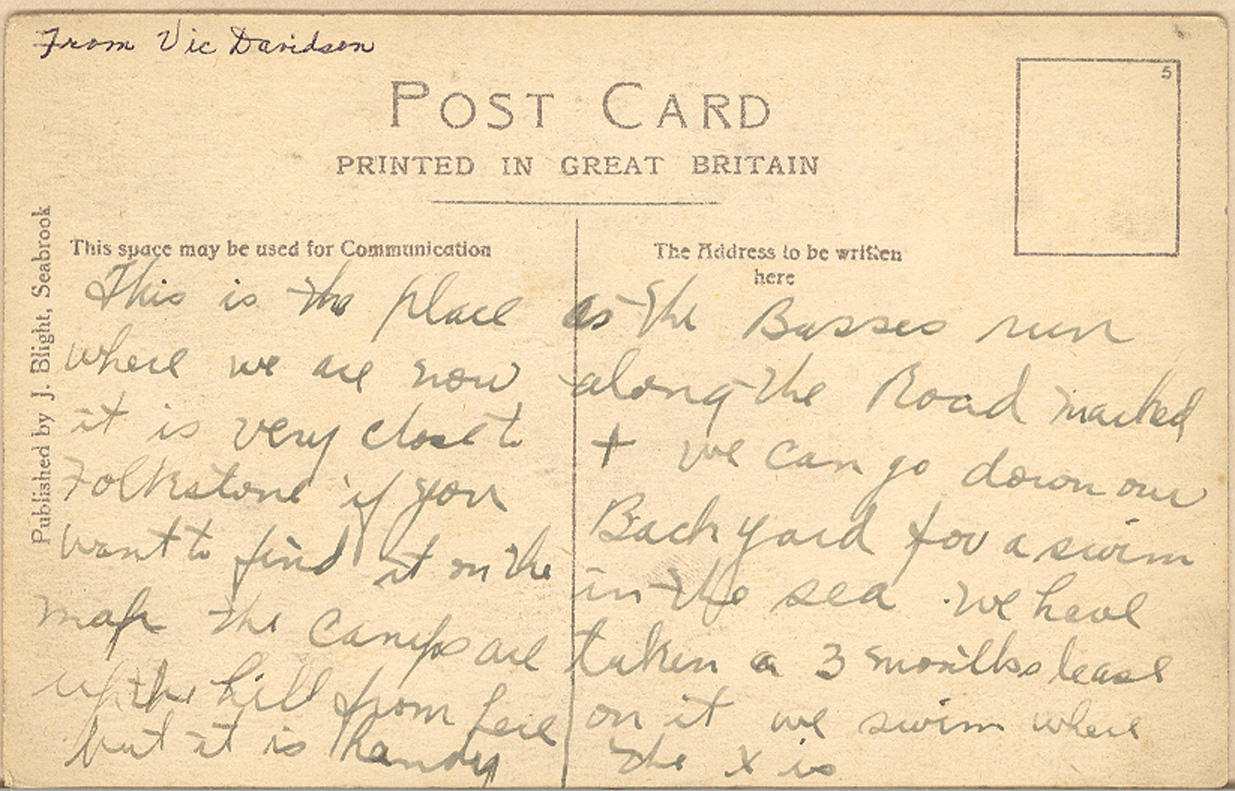 From Vic Davidson
5
POST CARD
PRINTED IN GREAT BRITAIN
Published by J. Blight, Seabrook
This space may be used for Communication
This is the place
where we are now
it is very close to
Folkstone if you
want to find it on the
map the camps are
up the hill from here
but it is handy
The Address to be written
here
as the Busses run
along the Road marked
+ we can go down our
Back yard for a swim
in the sea. We have
taken a 3 months lease
on it we swim where
the x is